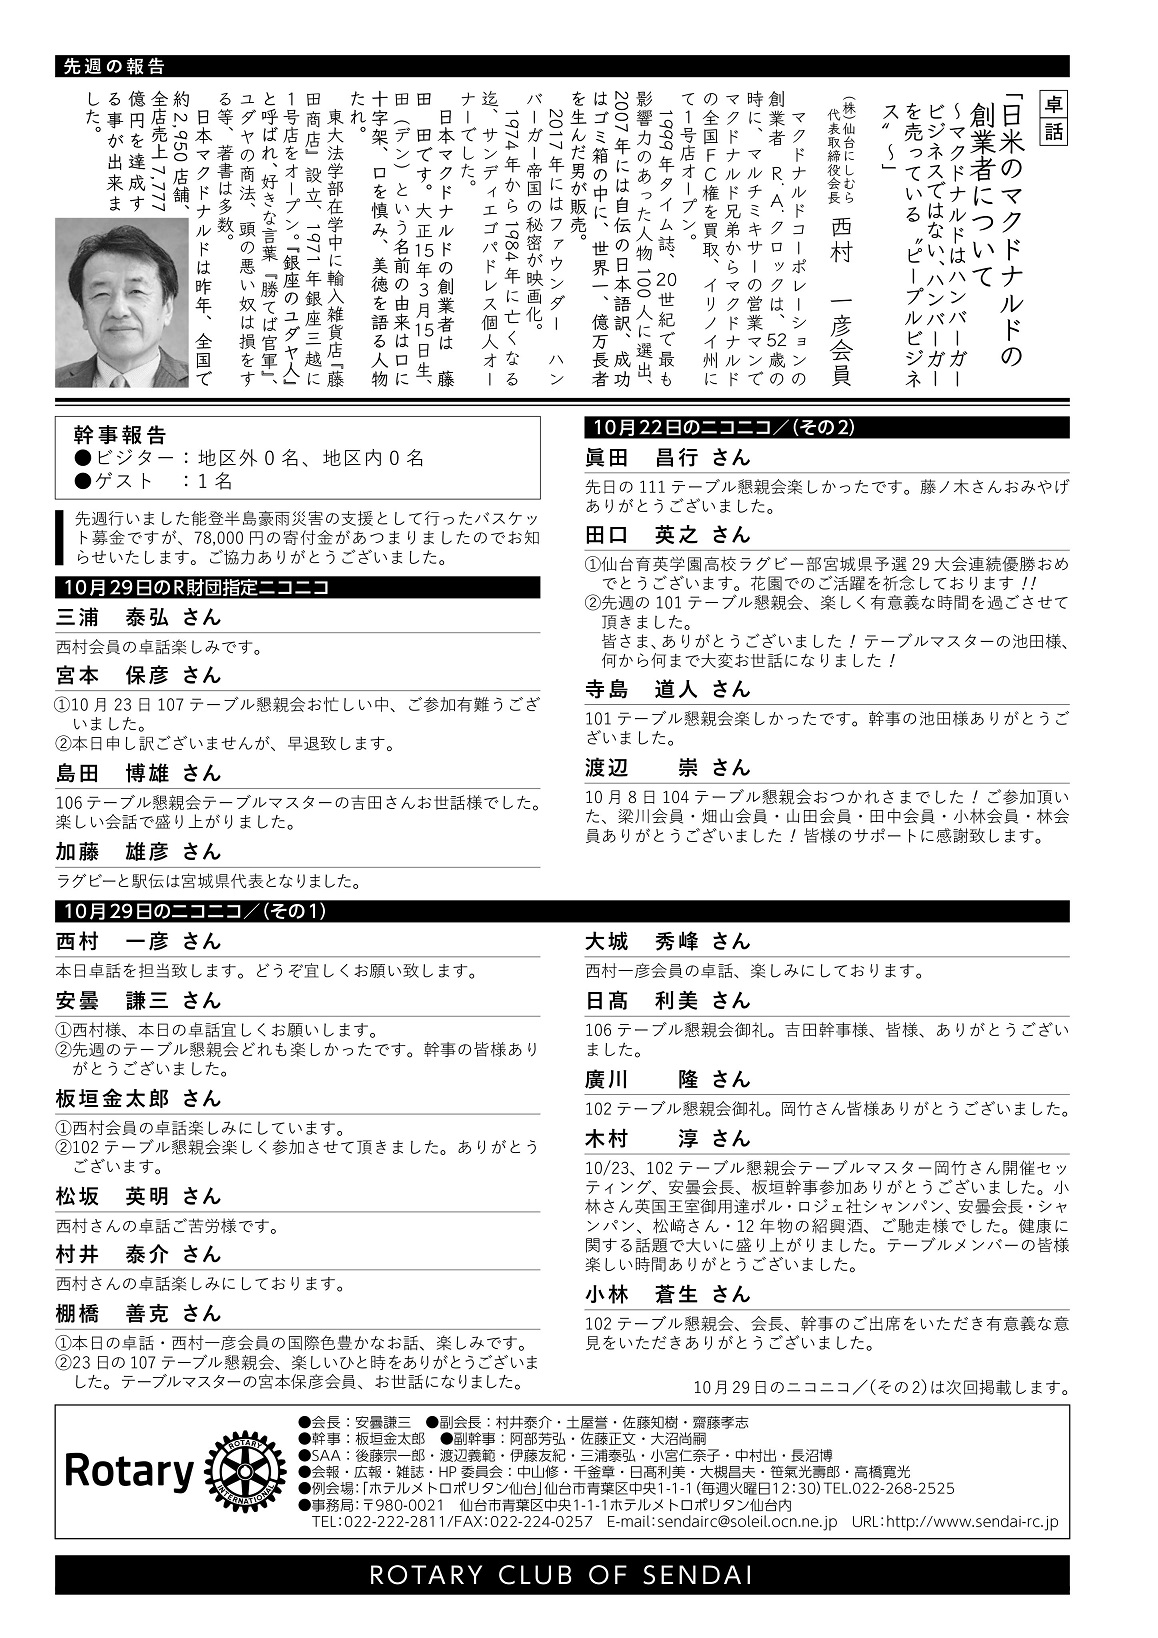 先週の報告
卓話
「日米のマクドナルドの
創業者について
～マクドナルドはハンバーガー
ビジネスではない、ハンバーガー
を売っている〝ピープルビジネ
ス〟～」
(株)仙台にしむら
代表取締役会長 西村 一彦会員
マクドナルドコーポレーションの
創業者 R.A.クロックは、52歳の
時に、マルチミキサーの営業マンで
マクドナルド兄弟からマクドナルド
の全国FC権を買取、イリノイ州に
て1号店オープン。
1999年タイム誌、20世紀で最も
影響力のあった人物100人に選出、
2007年には自伝の日本語訳、成功
はゴミ箱の中に、世界一、億万長者
を生んだ男が販売。
2017年にはファウンダー ハン
バーガー帝国の秘密が映画化。
1974年から1984年に亡くなる
迄、サンディエゴパドレス個人オー
ナーでした。
日本マクドナルドの創業者は 藤
田 田です。大正15年3月15日生、
田(デン)という名前の由来は口に
十字架、口を慎み、美徳を語る人物
たれ。
東大法学部在学中に輸入雑貨店『藤
田商店』設立、1971年銀座三越に
1号店をオープン。『銀座のユダヤ人』
と呼ばれ、好きな言葉『勝てば官軍』、
ユダヤの商法、頭の悪い奴は損をす
る等、著書は多数。
日本マクドナルドは昨年、全国で
約2,950店舗、
全店売上7,777
億円を達成す
る事が出来ま
した。
幹事報告
●ビジター：地区外0名、地区内0名
●ゲスト ：1名
先週行いました能登半島豪雨災害の支援として行ったバスケッ
ト募金ですが、78,000円の寄付金があつまりましたのでお知
らせいたします。ご協力ありがとうございました。
10月29日のR財団指定ニコニコ
三浦 泰弘 さん
西村会員の卓話楽しみです。
宮本 保彦 さん
①10月23日107テーブル懇親会お忙しい中、ご参加有難うござ
いました。
②本日申し訳ございませんが、早退致します。
島田 博雄 さん
106テーブル懇親会テーブルマスターの吉田さんお世話様でした。
楽しい会話で盛り上がりました。
加藤 雄彦 さん
ラグビーと駅伝は宮城県代表となりました。
10月22日のニコニコ／(その2)
眞田 昌行 さん
先日の111テーブル懇親会楽しかったです。藤ノ木さんおみやげ
ありがとうございました。
田口 英之 さん
①仙台育英学園高校ラグビー部宮城県予選29大会連続優勝おめ
でとうございます。花園でのご活躍を祈念しております!!
②先週の101テーブル懇親会、楽しく有意義な時間を過ごさせて
頂きました。
皆さま、ありがとうございました！テーブルマスターの池田様、
何から何まで大変お世話になりました！
寺島 道人 さん
101テーブル懇親会楽しかったです。幹事の池田様ありがとうご
ざいました。
渡辺 崇 さん
10月8日104テーブル懇親会おつかれさまでした！ご参加頂い
た、梁川会員・畑山会員・山田会員・田中会員・小林会員・林会
員ありがとうございました！皆様のサポートに感謝致します。
10月29日のニコニコ／(その1)
西村 一彦 さん
本日卓話を担当致します。どうぞ宜しくお願い致します。
安曇 謙三 さん
①西村様、本日の卓話宜しくお願いします。
②先週のテーブル懇親会どれも楽しかったです。幹事の皆様あり
がとうございました。
板垣金太郎 さん
①西村会員の卓話楽しみにしています。
②102テーブル懇親会楽しく参加させて頂きました。ありがとう
ございます。
松坂 英明 さん
西村さんの卓話ご苦労様です。
村井 泰介 さん
西村さんの卓話楽しみにしております。
棚橋 善克 さん
①本日の卓話・西村一彦会員の国際色豊かなお話、楽しみです。
②23日の107テーブル懇親会、楽しいひと時をありがとうございま
した。テーブルマスターの宮本保彦会員、お世話になりました。
大城 秀峰 さん
西村一彦会員の卓話、楽しみにしております。
日髙 利美 さん
106テーブル懇親会御礼。吉田幹事様、皆様、ありがとうござい
ました。
廣川 隆 さん
102テーブル懇親会御礼。岡竹さん皆様ありがとうございました。
木村 淳 さん
10/23、102テーブル懇親会テーブルマスター岡竹さん開催セッ
ティング、安曇会長、板垣幹事参加ありがとうございました。小
林さん英国王室御用達ポル・ロジェ社シャンパン、安曇会長・シャ
ンパン、松﨑さん・12年物の紹興酒、ご馳走様でした。健康に
関する話題で大いに盛り上がりました。テーブルメンバーの皆様
楽しい時間ありがとうございました。
小林 蒼生 さん
102テーブル懇親会、会長、幹事のご出席をいただき有意義な意
見をいただきありがとうございました。
10月29日のニコニコ／(その2)は次回掲載します。
Rotary
ROTARY INTERNATIONAL
●会長：安曇謙三 ●副会長：村井泰介・土屋誉・佐藤知樹・齋藤孝志
●幹事：板垣金太郎 ●副幹事：阿部芳弘・佐藤正文・大沼尚嗣
●SAA：後藤宗一郎・渡辺義範・伊藤友紀・三浦泰弘・小宮仁奈子・中村出・長沼博
●会報・広報・雑誌・HP委員会：中山修・千釜章・日髙利美・大槻昌夫・笹氣光壽郎・高橋寛光
●例会場：「ホテルメトロポリタン仙台」仙台市青葉区中央1-1-1（毎週火曜日12：30）TEL.022-268-2525
●事務局：〒980-0021 仙台市青葉区中央1-1-1ホテルメトロポリタン仙台内
TEL：022-222-2811/FAX：022-224-0257 E-mail：sendairc@soleil.ocn.ne.jp URL：http://www.sendai-rc.jp
ROTARY CLUB OF SENDAI